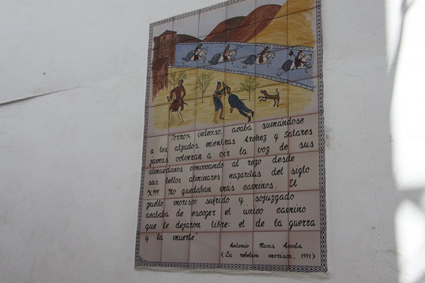 Torrox valeroso, acaba sumandose
a los alzados, mientras Arohez y Salares
jamas volveran a oir la voz de sus
almuedanos convocando al rezo desde
sus bellos alminares nazaritas del siglo
XIII. No quedaban mas caminos. El
pueblo morisco sufrido y sojuzgado
acababa de escoger el unico camino
que le dejaron libre: el de la guerra
y la muerte
Antonio Navas Acosta
(La rebelion morisca, 1991)